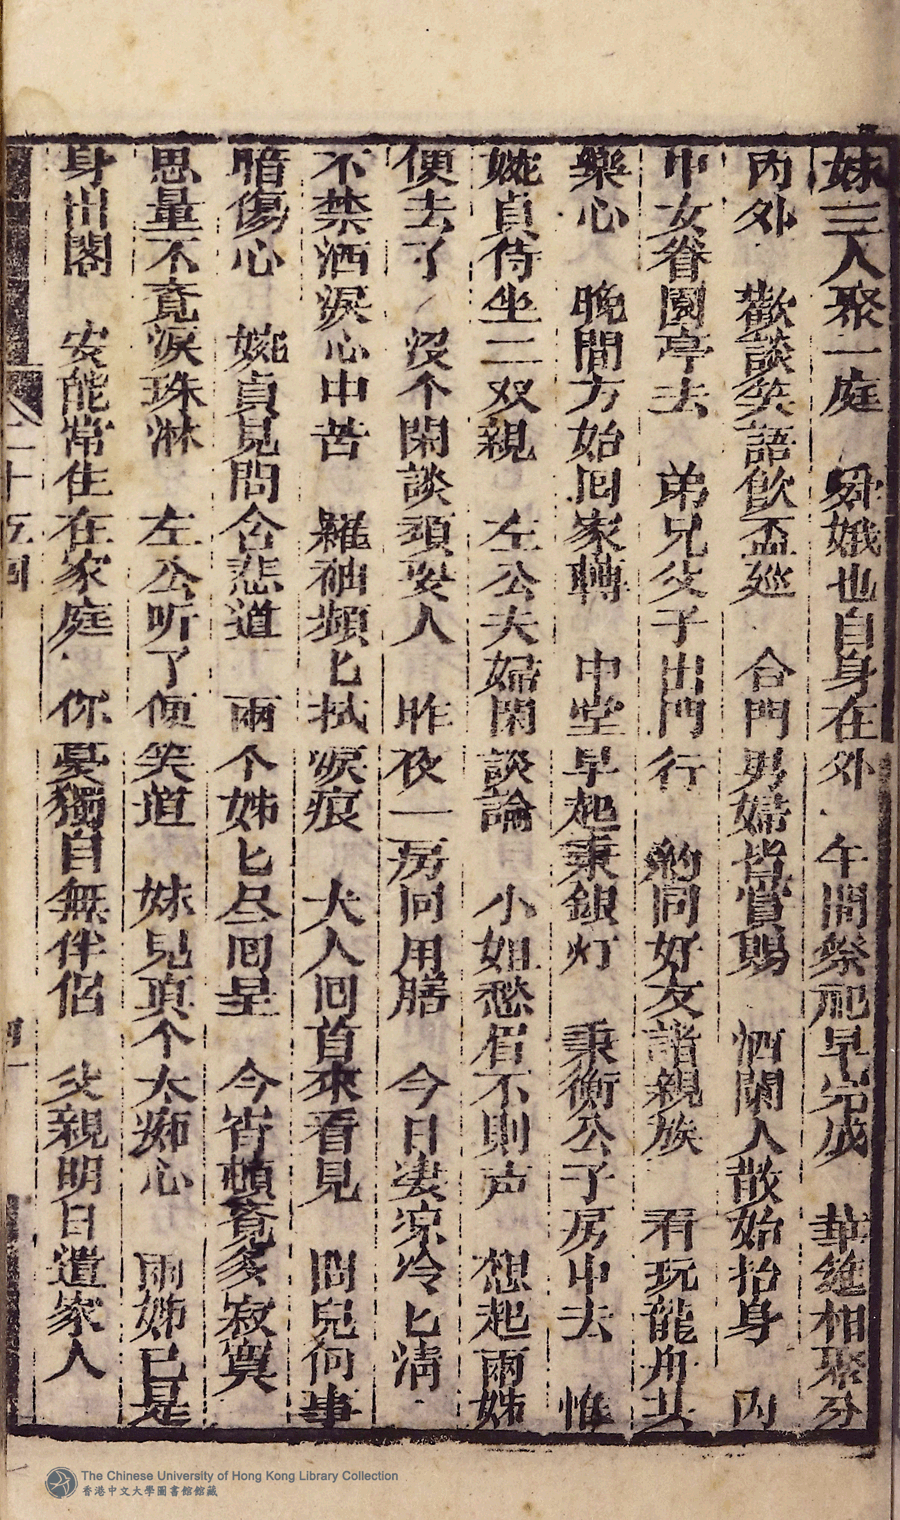 妹三人聚一庭　舜娥也自身在外　午間祭祀早完成　華筵相聚分
內外　歡談笑語飲盃廵　合門男婦皆賞賜　酒闌人散始抬身　內
中女眷園亭去　弟兄父子出門行　約同好友諸親族　看玩龍舟共
樂心　晚間方始囘家轉　中堂早起秉銀灯　秉衡公子房中去　惟
婉貞侍坐二双親　左公夫婦閑談論　小姐愁眉不則声　想起兩姊
便去了　沒个閑談頑耍人　昨夜一房同用膳　今日凄凉冷匕清
不禁洒淚心中苦　羅袖頻匕拭淚痕　夫人囘首來看見　問兒何事
暗傷心　婉貞見問含悲道　兩个姊匕尽囘呈　今宵頓覺多寂寞
思量不竟淚珠淋　左公听了便笑道　妹兒真个太痴心　兩姊已是
身出閣　安能常住在家庭　你憂獨自無伴侶　父親明日遣家人
二十五回
The Chinese University of Hong Kong Library Collection
香港中文大學圖書館館藏